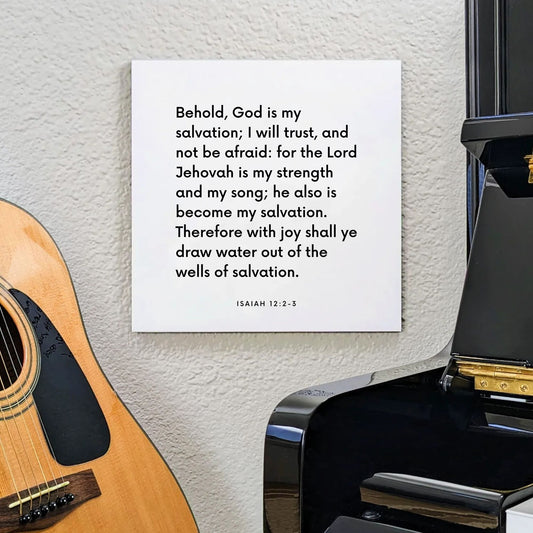 Behold, God is my
salvation; I will trust, and
not be afraid: for the Lord
Jehovah is my strength
and my song; he also is
become my salvation.
Therefore with joy shall ye
draw water out of the
wells of salvation.
ISAIAH 12:2-3